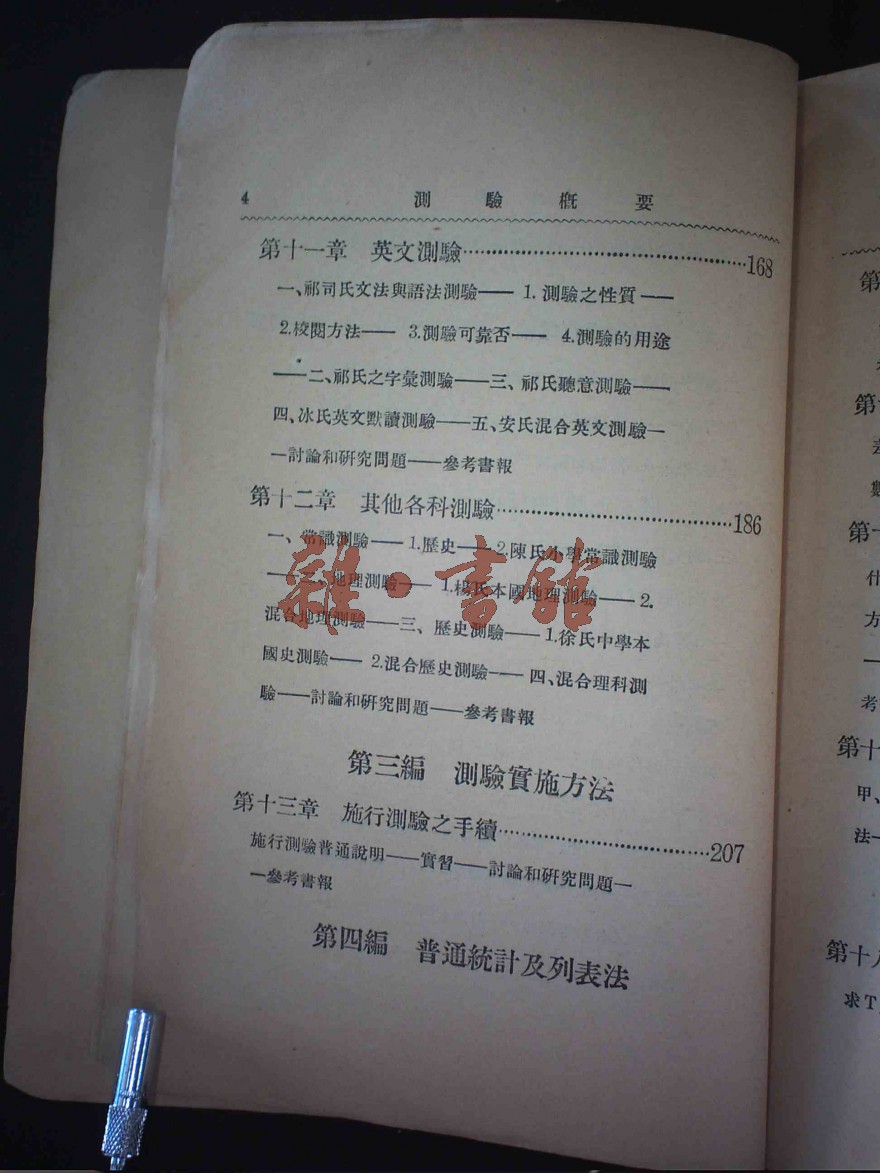 4 測驗概要
第十一章 英文測驗……168
一、祁司氏文法與語法測驗—— 1. 測驗之性質 ——
2.校閱方法—— 3.測驗可靠否—— 4.測驗的用途
——二、祁氏之字彙測驗——三、祁氏聽意測驗——
四、冰氏英文默讀測驗——五、安氏混合英文測驗—
—討論和研究問題——參考書報
第十二章 其他各科測驗……186
一、常識測驗—— 1.歷史——2.陳氏小學常識測驗
——二、地理測驗—— 1.楊氏本國地理測驗—— 2.
混合地理測驗——三、歷史測驗—— 1.徐氏中學本
國史測驗—— 2.混合歷史測驗—— 四、混合理科測
驗——討論和研究問題——參考書報
第三編 測驗實施方法
第十三章 施行測驗之手續……207
施行測驗普通說明——實習——討論和研究問題—
—參考書報
第四編 普通統計及列表法
雜·書館
第
第
數
第十
什
方
考
第十
甲、
法—
第十八
求T